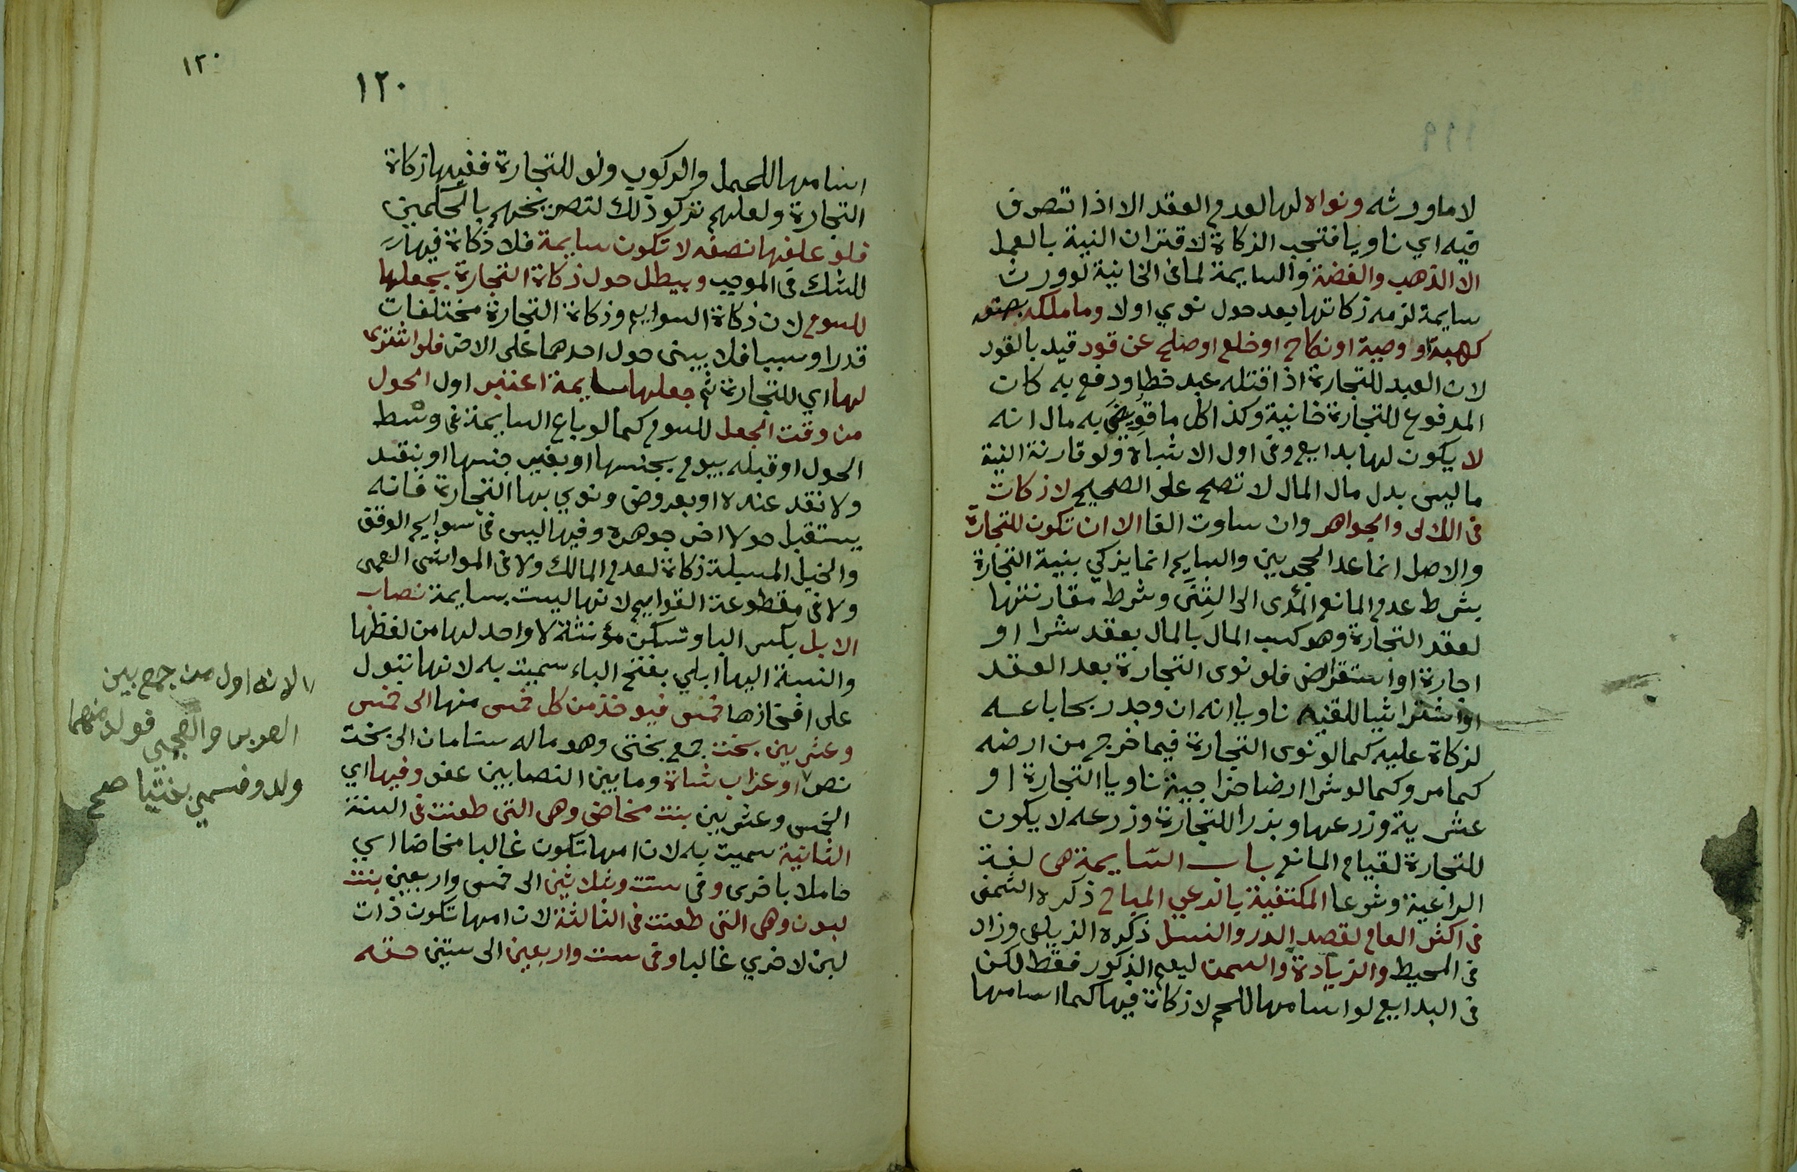 ١١٩
لا ما ورثه ونواه لها لعدم العقد الا اذا تصرف
فيه اي ناويا فتجب الزكاة لاقتران النية بالعمل
الا الذهب والفضة والسايمة لما في الخانية لو ورث
سايمة لزمه زكاتها بعد حول نوي اولا وما ملكه بصنعه
كهبة او وصية او نكاح او خلع او صلح عن قود قيد بالقود
لان العبد للتجارة اذا قتله عبد خطا ودفع به كان
المدفوع للتجارة خانية وكذا كل ما قويض به مال انه
لا يكون لها بدايع وفي اول الاشباه ولو قارنة النية
ما ليس بدل مال المال لا تصح على الصحيح لا زكات
في اللالى والجواهر وان ساوت الفا الا ان تكون للتجارة
والاصل انما عدا الحجرين والسايم انما يزكي بنية التجارة
بشرط عدم المانع المؤدى الى الثنى وشرط مقارنتها
لعقد التجارة وهو كسب المال بالمال بعقد شرا او
اجارة او استقراض فلو نوى التجارة بعد العقد
او اشترا شيا للقنية ناويا انه ان وجد ربحا باعه
لزكاة عليه كما لو نوى التجارة فيما خرج من ارضه
كما مر وكما لو شرا ارضا خراجية ناويا التجارة او
عشرية وزرعها وبذرا للتجارة وزرعه لا يكون
للتجارة لقيام المانع باب السايمة هي لغة
الراعية وشرعا المكتفية بالرعي المباح ذكره الشمنى
في اكثر العام لقصد الدر والنسل ذكره الزيلعى وزاد
في المحيط والزيادة والسمن ليعم الذكور فقط لكن
في البدايع لو اسامها للحم لا زكاة فيها كما اسامها
١٢٠
١٢٠
اسامها للحمل والركوب ولو للتجارة ففيها زكاة
التجارة ولعلهم تركو ذلك لتصريحهم بالحكمين
فلو علفها نصفه لا تكون سايمة فلا زكاة فيها
للشك في الموجب ويبطل حول زكاة التجارة بجعلها
للسوم لان زكاة السوايم وزكاة التجارة مختلفات
قدرا وسببا فلا يبنى حول احدهما على الاخر فلو اشترى
لها اي للتجارة ثم جعلها سايمة اعتبر اول الحول
من وقت الجعل للسوم كما لو باع السايمة في وسط
الحول او قبله بيوم بجنسها او بغير جنسها او بنقد
ولا نقد عنده او بعروض ونوي بها التجارة فانه
يستقبل حولا اخر جوهرة وفيها ليس في سوايم الوقف
والخيل المسبلة زكاة لعدم المالك ولا في المواشى العمى
ولا في مقطوعة القوايم لانها ليست بسايمة نصاب
الابل بكسر البا وتسكن مؤنثة لا واحد لها من لفظها
والنسبة اليها ابلي بفتح الباء سميت به لانها تبول
على افخاذها خمس فيوخذ من كل خمس منها الى خمس
وعشرين بخت جمع بختى وهو ماله سنامان الى بخت
نصر او عراب شاة وما بين النصابين عفو وفيها اي
الخمس وعشرين بنت مخاض وهى التى طعنت في السنة
الثانية سميت به لان امها تكون غالبا مخاضا اي
حاملا باخرى وفي ست وثلاثين الى خمس واربعين بنت
لبون وهى التى طعنت في الثالثة لان امها تكون ذات
لبن لاخري غالبا وفي ست واربعين الى ستين حقه
لانه اول من جمع بين
العربي والعجمي فولد منهما
ولد فسمي بختيا صح